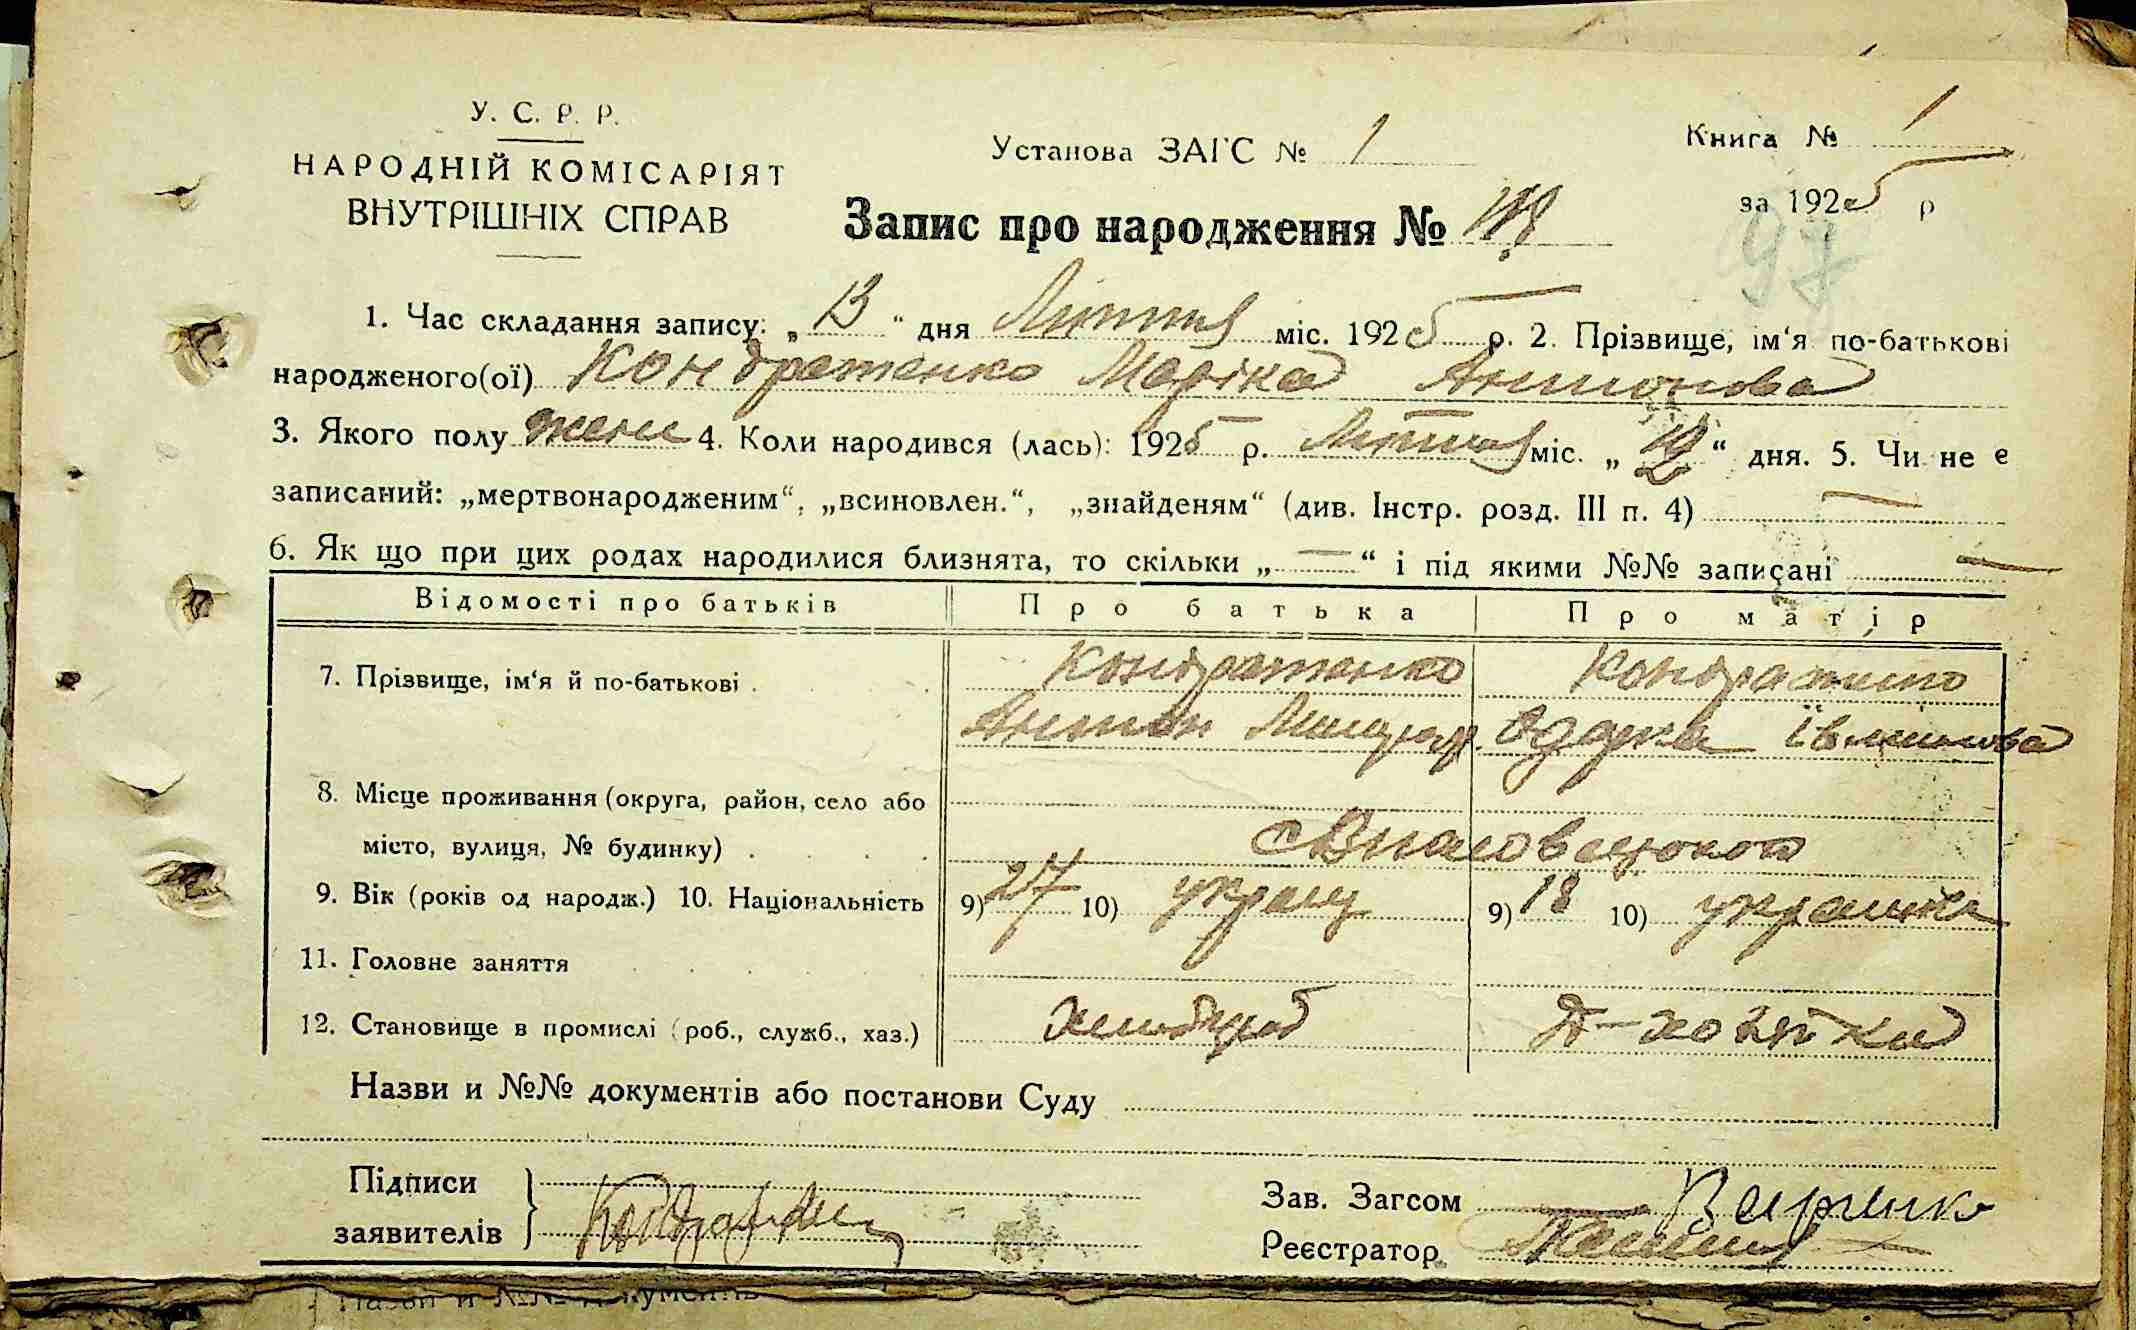 У. С. Р. Р.
НАРОДНІЙ КОМІСАРІЯТ
ВНУТРІШНІХ СПРАВ
Установа ЗАГС № 1
Книга № 1
за 1925 р
Запис про народження №
97
1. Час складання запису: „13“ дня Липня міс. 1925 р. 2. Прізвище, ім‘я по-батькові
народженого(ої) Кондратенко Марійка Антонова
3. Якого полу жени 4. Коли народився (лась): 1925 р. Липня міс. „12“ дня. 5. Чи не є
записаний: „мертвонародженим“, „всиновлен.“, „знайденям“ (див. Інстр. розд. III п. 4) —
6. Як що при цих родах народилися близнята, то скільки „—“ і під якими №№ записані —
Відомості про батьків Про батька Про матір
7. Прізвище, ім‘я й по-батькові . Кондратенко Кондратенко
Антон Одарка
8. Місце проживання (округа, район, село або
місто, вулиця, № будинку) . . . .
9. Вік (років од народж.) 10. Національність 9) 27 10) украц 9) 18 10) українка
11. Головне заняття
12. Становище в промислі (роб., служб., хаз.) хлібороб д-хозяйка
Назви и №№ документів або постанови Суду
Підписи
заявителів
Зав. Загсом
Реєстратор